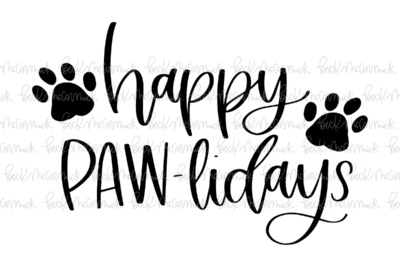 happy
PAW-lidays